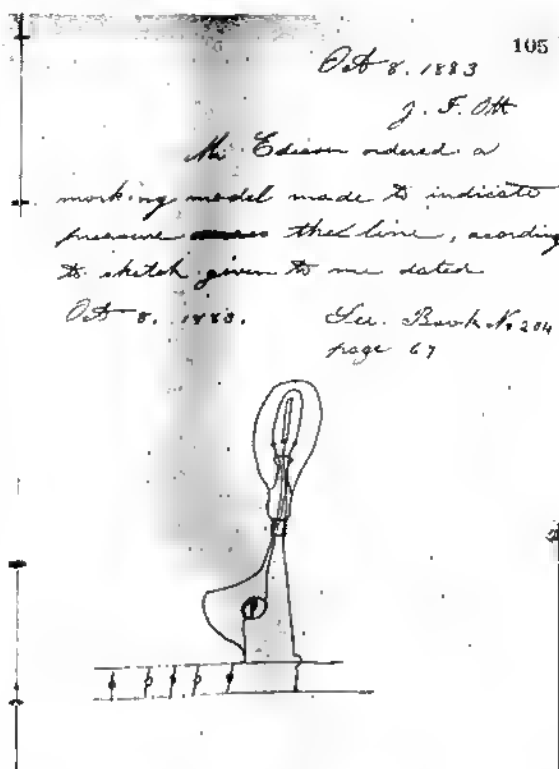 105
Oct 8. 1883
J. F. Ott
Mr Edison ordered a
working model made to indicate
pressure the line, acording
to sketch given to me dated
Oct 8. 1883.
See. Book No 204
page 67